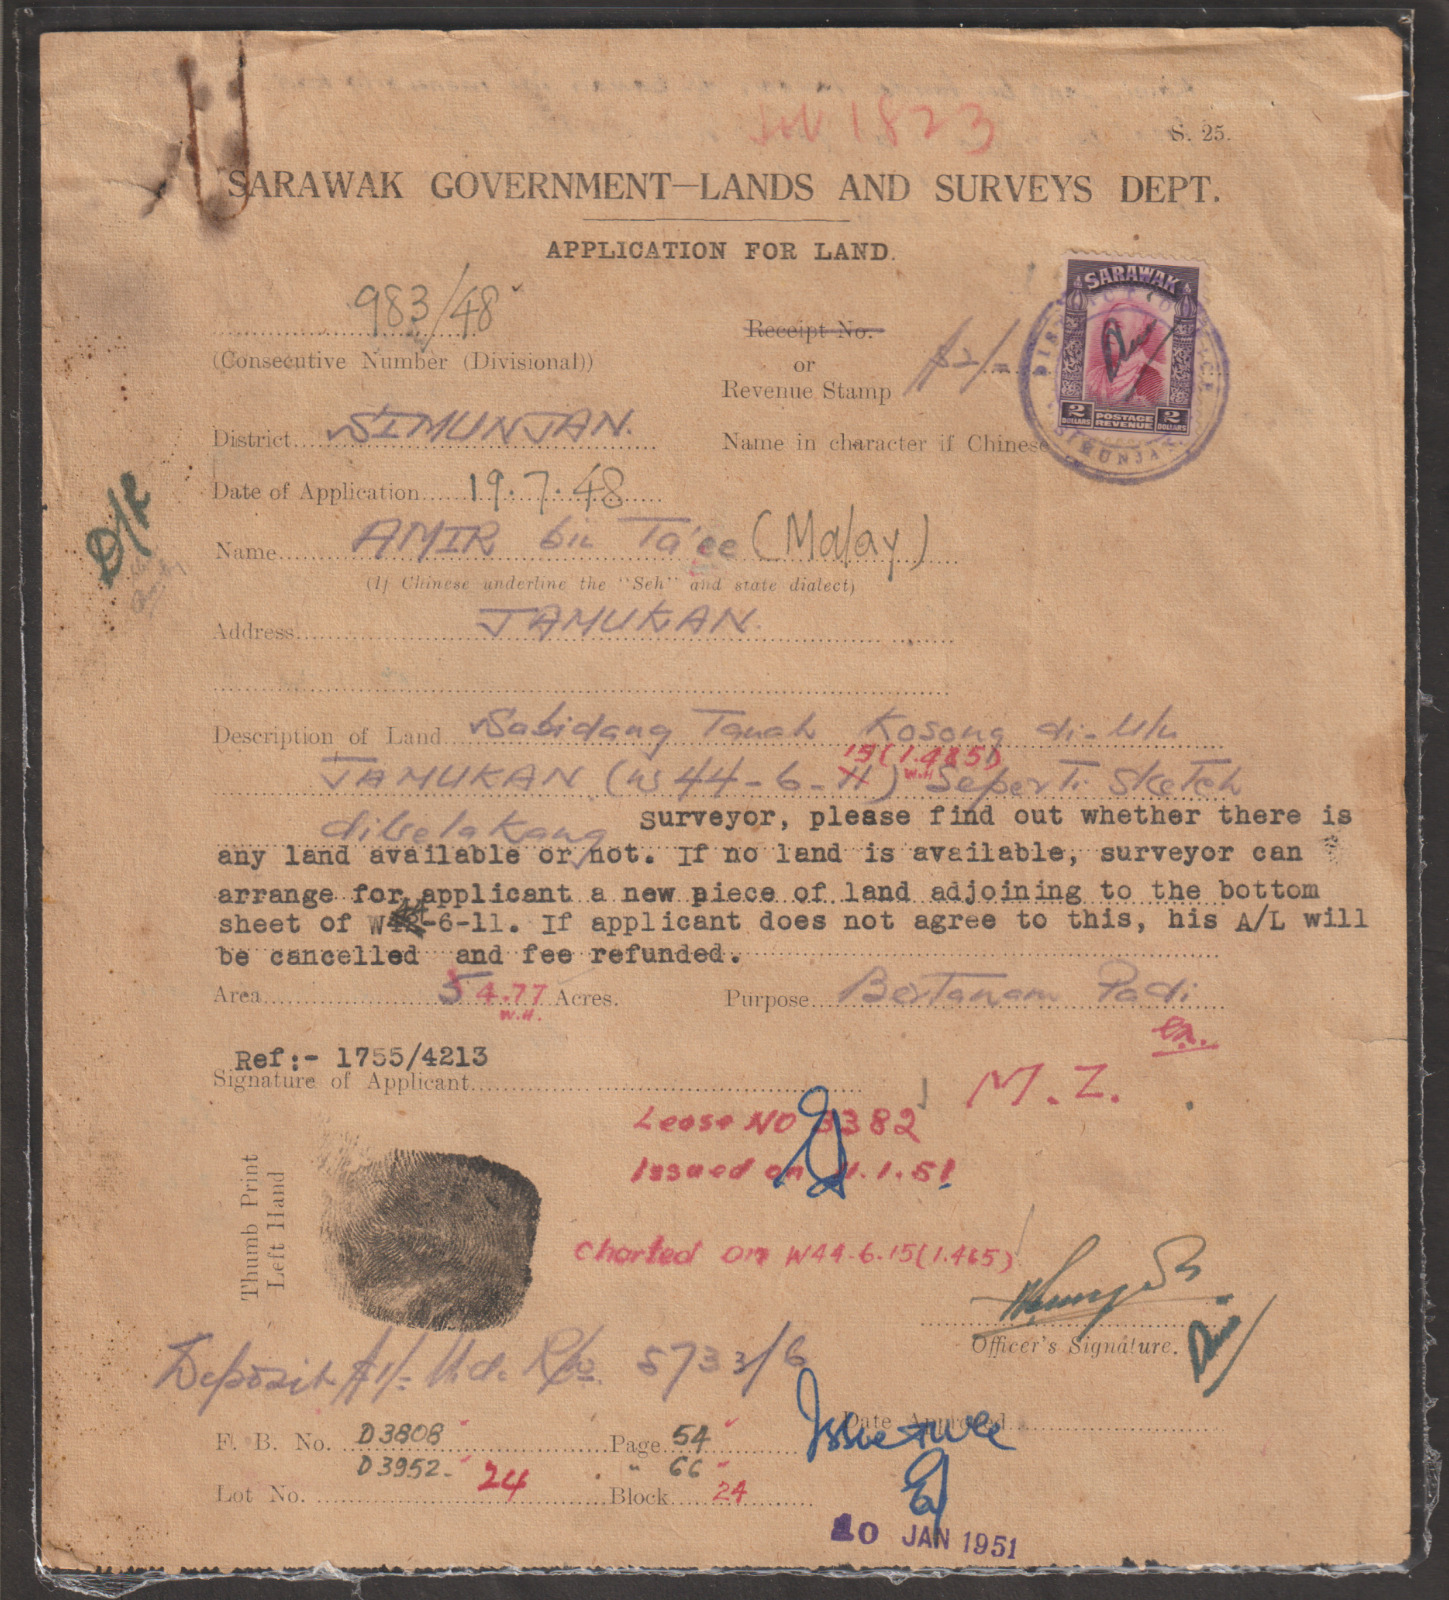 1823
S. 25.
SARAWAK GOVERNMENT—LANDS AND SURVEYS DEPT.
APPLICATION FOR LAND.
983/48
(Consecutive Number (Divisional))
Receipt No.
or
Revenue Stamp $2/=
SARAWAK
2 DOLLARS POSTAGE REVENUE 2 DOLLARS
SIMUNJAN
District SIMUNJAN.
Name in character if Chinese
Date of Application 19.7.48
D/L
Name AMIR bin Ta'ee (Malay)
(If Chinese underline the "Seh" and state dialect)
Address JAMUKAN.
Description of Land Sabidang Tanah Kosong di-Ulu
15(1.465)
JAMUKAN (W44-6-11) W.H Seperti Sketch
dibelakang Surveyor, please find out whether there is
any land available or not. If no land is available, surveyor can
arrange for applicant a new piece of land adjoining to the bottom
44
sheet of W42-6-11. If applicant does not agree to this, his A/L will
be cancelled and fee refunded.
Area 5 4.77 Acres. Purpose Bertanam Padi
W.H.
Ref:- 1755/4213
Signature of Applicant
M.Z.
Lease NO 3382
Issued on 11.1.51
Thumb Print
Left Hand
Charted on W44-6.15(1.465)
Officer's Signature.
Deposit $1/- 5733/6
Date Approved
Issue
F. B. No. D3808 Page 54
D3952 " 66
Lot No. 24 Block 24
10 JAN 1951